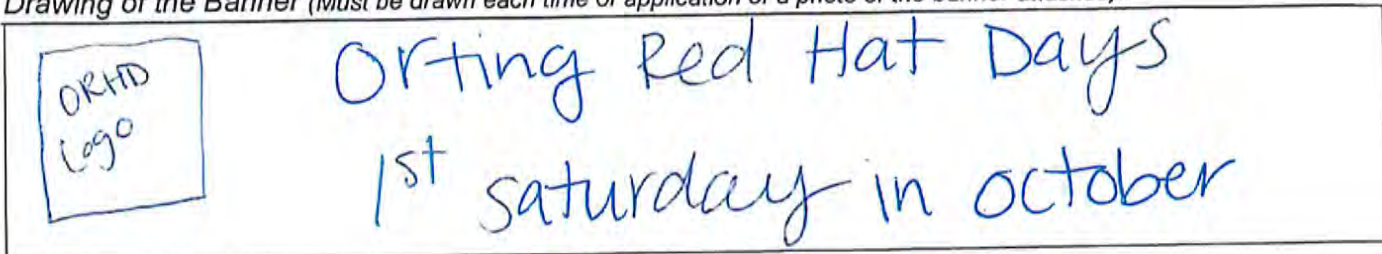 Drawing of the Banner (Must be drawn each time of application or a photo of the banner attached)
ORHD
Logo
Orting Red Hat Days
1st saturday in october